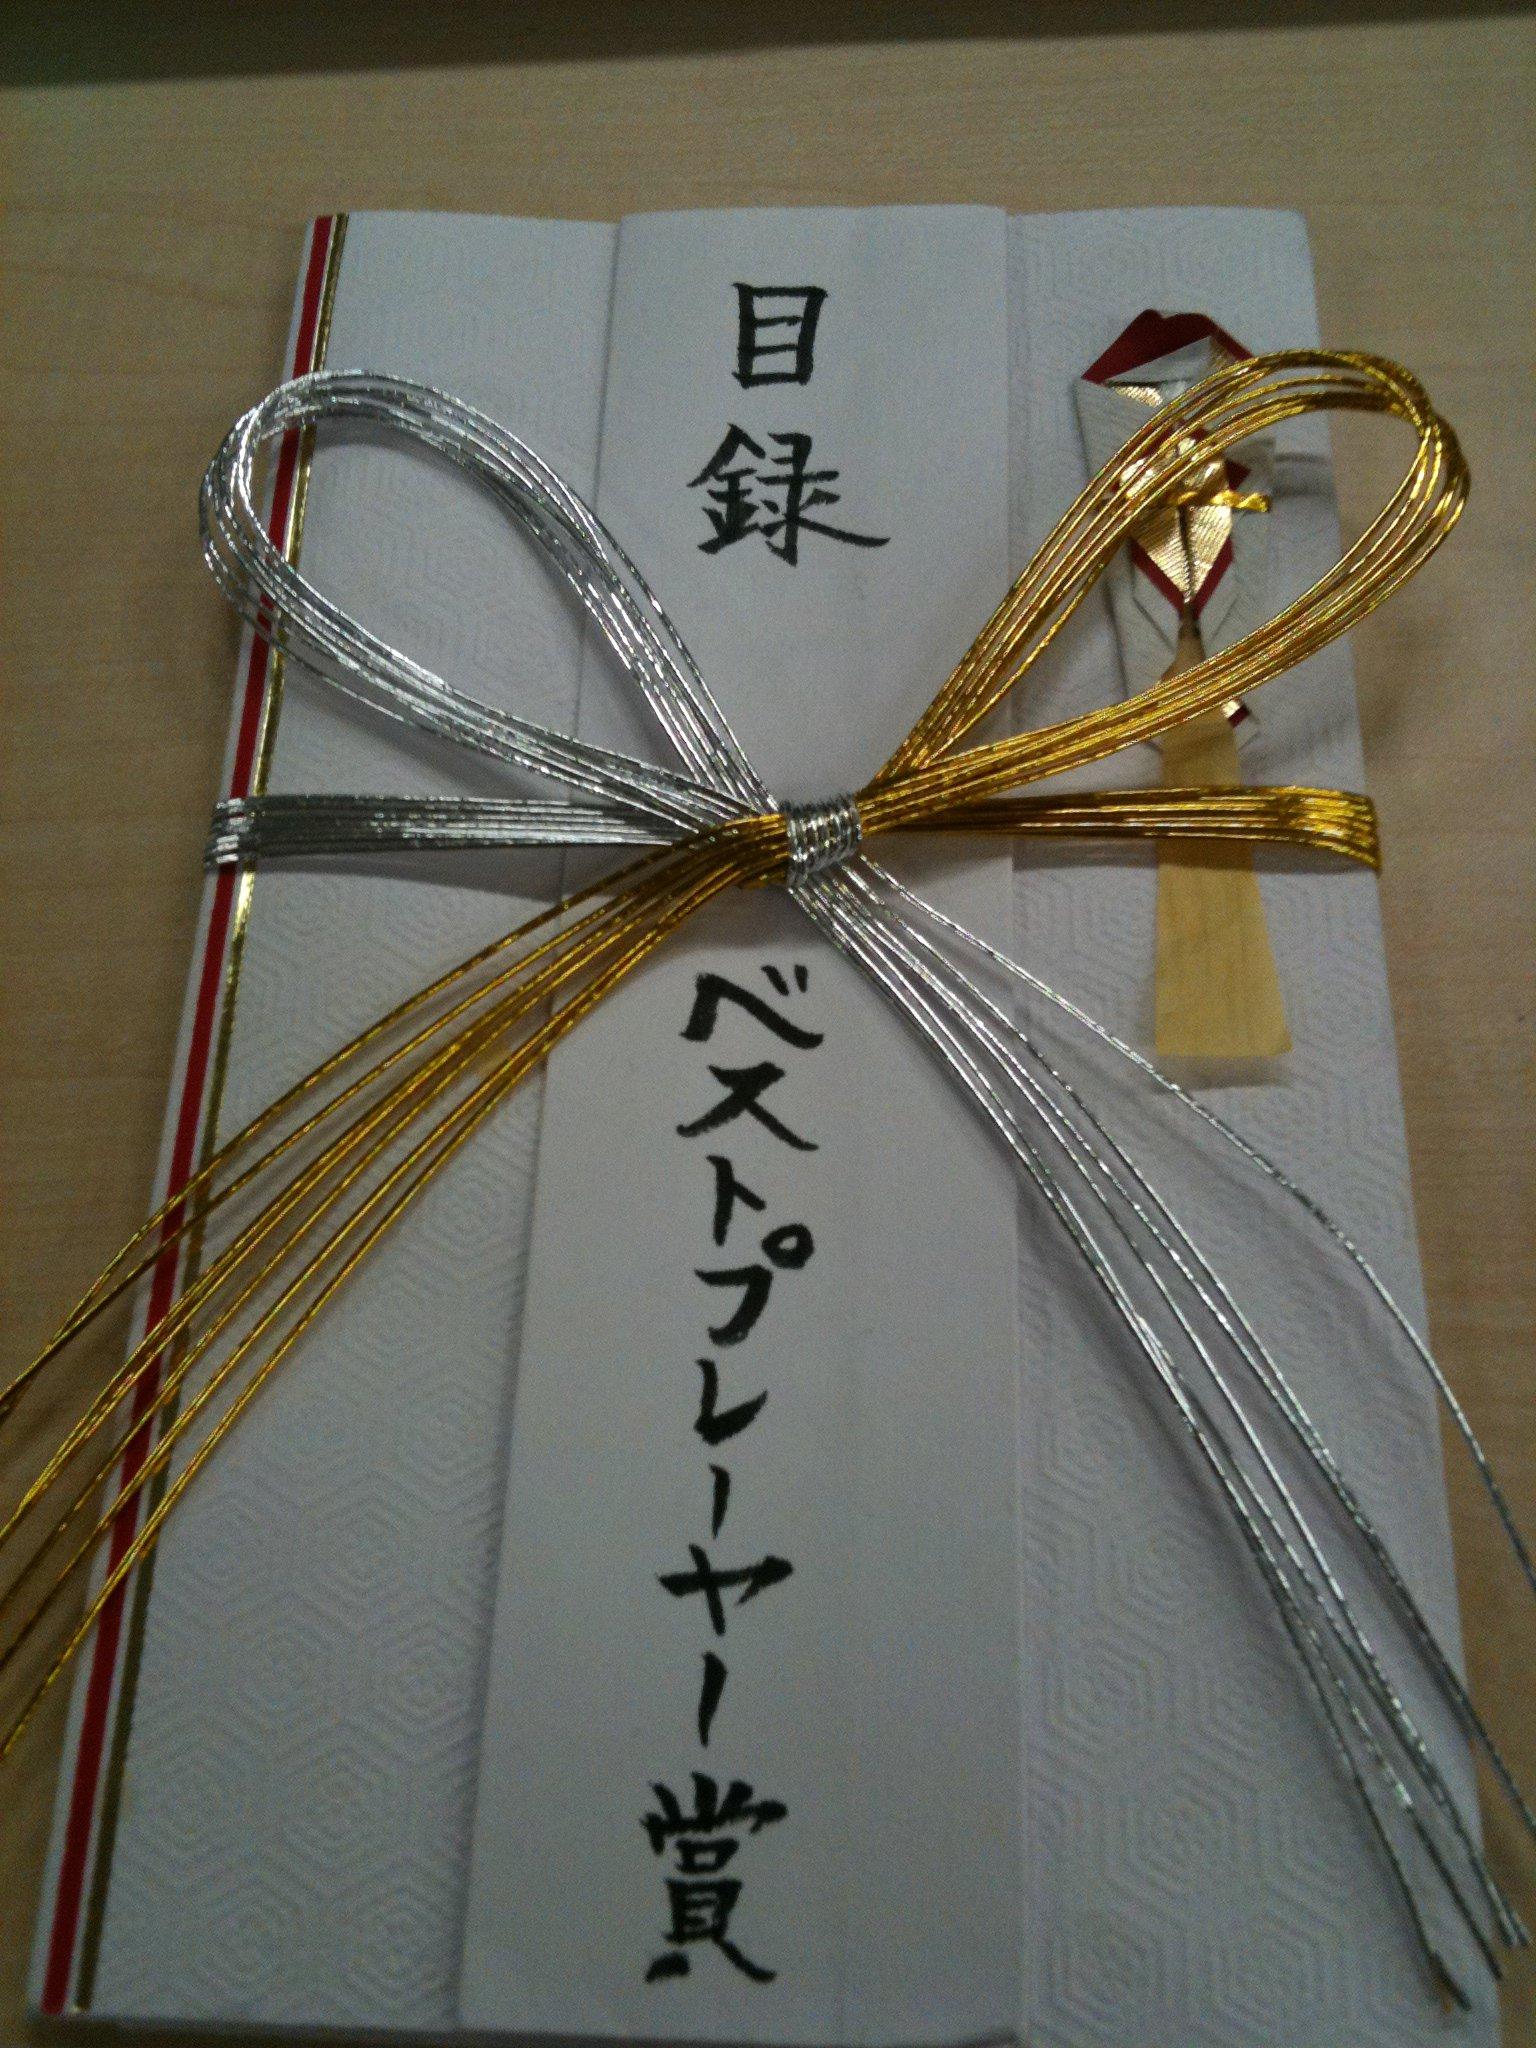 目録
ベストプレーヤー賞